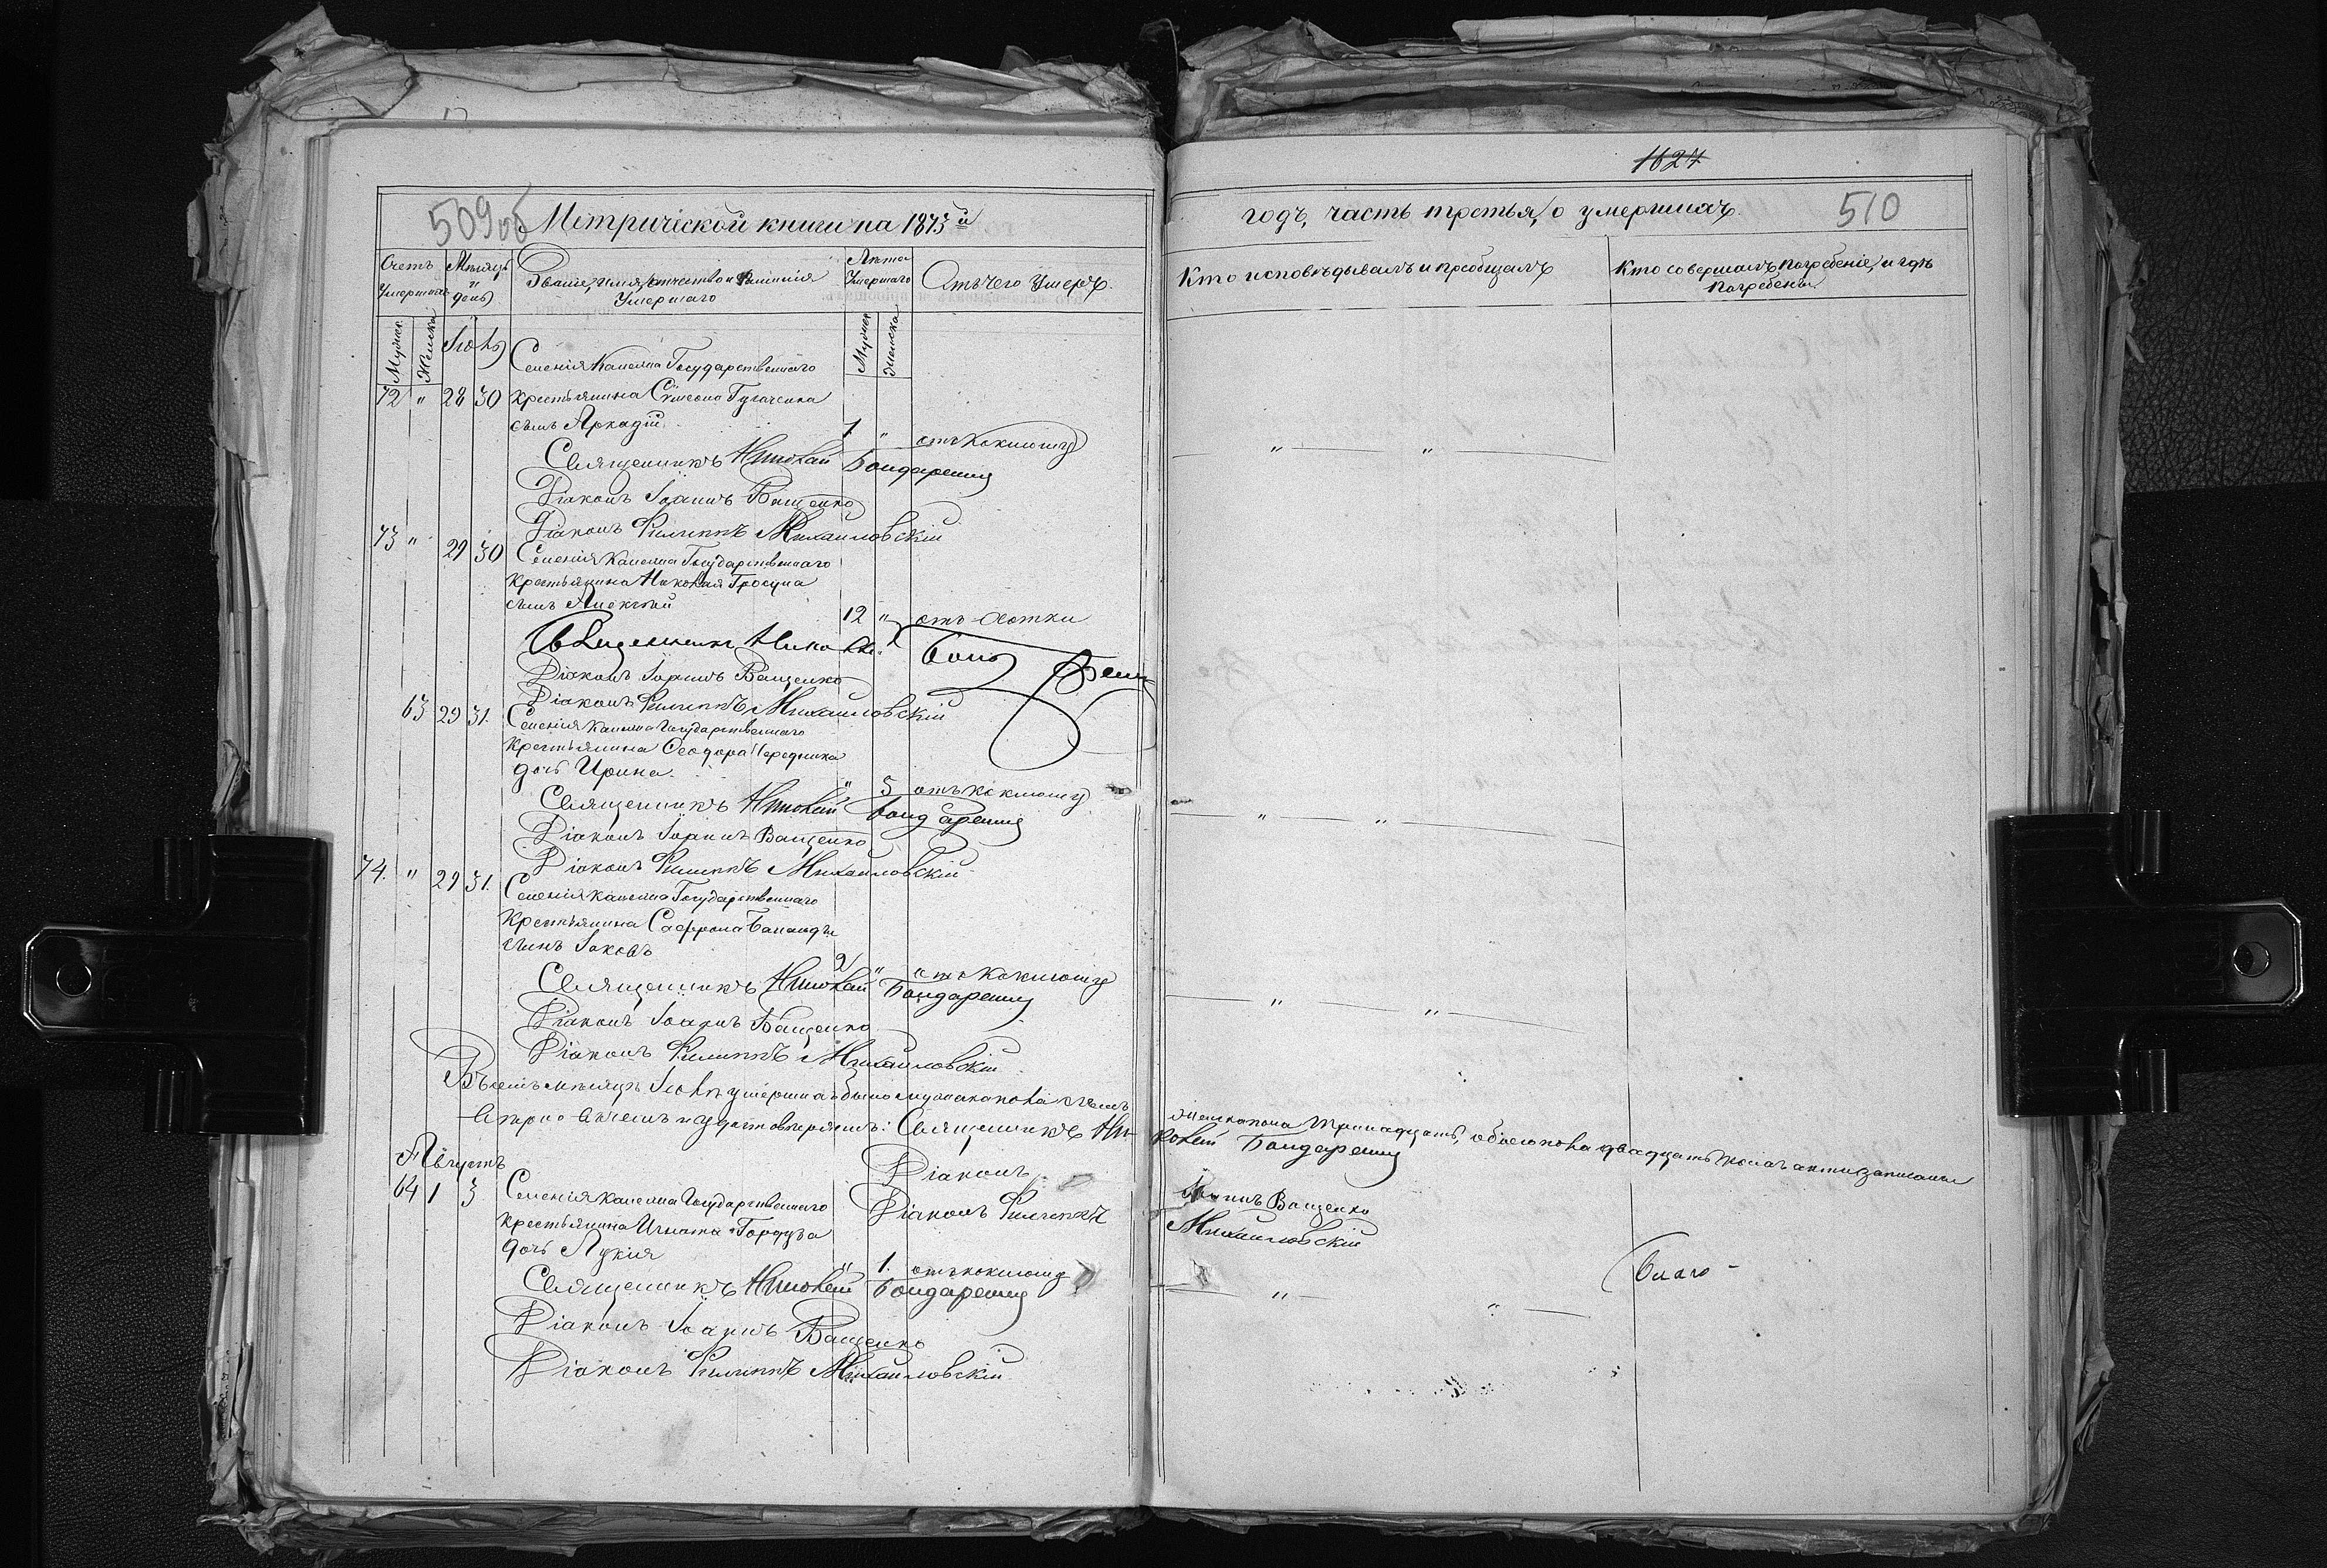 1627
509 об
Метрической книги на 1875й
годъ, часть третья, о умершихъ.
510
Счетъ Умершихъ
Мѣсяцъ и день
Званіе, имя, отчество и фамилія Умершаго
Лѣта Умершаго
Отъ чего Умеръ.
Кто исповѣдывалъ и пріобщалъ
Кто совершалъ погребеніе, и гдѣ погребены
Мужск
Женска
Іюль
Мужск
Женска
Селенія Каменна Государственнаго
72 " 28 30 крестьянина Сѵмеона
сынъ Аркадій. 1 " отъ коклюшу
Священникъ Николай Бондаренко
Діаконъ Іоаннъ Ващенко
Діаконъ Филиппъ Михайловскій
73 " 29 30 Селенія Каменна Государственнаго
крестьянина Николая
сынъ Алексѣй 12 " отъ
Священникъ Николай
Діаконъ Іоаннъ Ващенко
Діаконъ Филиппъ Михайловскій
63 29 31. Селенія Каменна Государственнаго
крестьянина Ѳеодора Чередника
дочь Ирина. " 5 отъ коклюшу
Священникъ Николай Бондаренко
Діаконъ Іоаннъ Ващенко
Діаконъ Филиппъ Михайловскій
74. " 29 31. Селенія Каменна Государственнаго
крестьянина Сафрона
сынъ Іаковъ 2 " отъ коклюшу
Священникъ Николай Бондаренко
Діаконъ Іоаннъ Ващенко
Діаконъ Филиппъ Михайловскій
Въ семъ мѣсяцѣ Іюлѣ умершихъ было мужеска пола женска пола тринадцать, обоего пола двадцать акты записаны
вѣрно въ чемъ и удостовѣряемъ: Священникъ Николай Бондаренко
Діаконъ Іоаннъ Ващенко
Діаконъ Филиппъ Михайловскій
Августъ
64 1 3 Селенія Каменна Государственнаго
крестьянина Игната
дочь Лукія " 1. отъ коклюшу
Священникъ Николай Бондаренко
Діаконъ Іоаннъ Ващенко
Діаконъ Филиппъ Михайловскій
Благо-